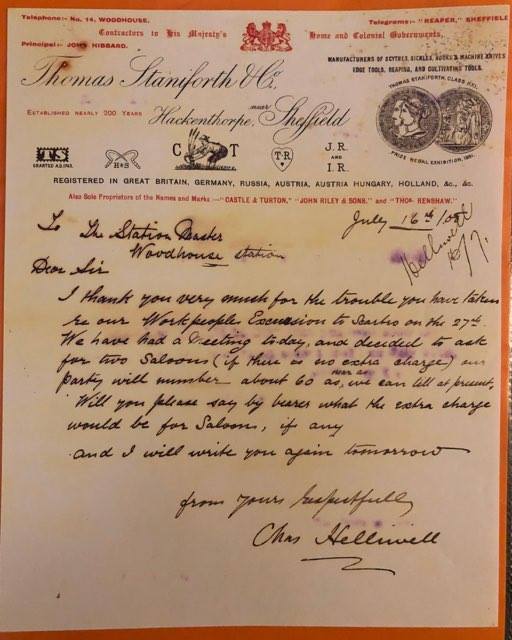 Telephone:- No. 14, WOODHOUSE.
Telegrams:- "REAPER," SHEFFIELD
Contractors to His Majesty's Home and Colonial Governments.
Principal:- JOHN HIBBARD.
MANUFACTURERS OF SCYTHES, SICKLES, HOOKS & MACHINE KNIVES
EDGE TOOLS, REAPING, AND CULTIVATING TOOLS.
Thomas Staniforth & Co.
ESTABLISHED NEARLY 200 YEARS
Hackenthorpe, near Sheffield
THOMAS STANIFORTH, CLASS XXI.
PRIZE MEDAL EXHIBITION, 1851.
TS
GRANTED A.D. 1743.
H & S
C T
T.R
J.R.
AND
I.R.
REGISTERED IN GREAT BRITAIN, GERMANY, RUSSIA, AUSTRIA, AUSTRIA HUNGARY, HOLLAND, &c., &c.
Also Sole Proprietors of the Names and Marks:- "CASTLE & TURTON," "JOHN RILEY & SONS," and "THOS. RENSHAW."
July 16th /
To The Station Master
Woodhouse station
Helliwell
Dear Sir
I thank you very much for the trouble you have taken
re our Workpeoples Excursion to Scarbro on the 27th.
We have had a Meeting today, and decided to ask
for two Saloons (if there is no extra charge) our
party will number about 60 as near as we can tell at present,
Will you please say by bearer what the extra charge
would be for Saloons, if any
and I will write you again tomorrow
from yours respectfully
Chas Helliwell